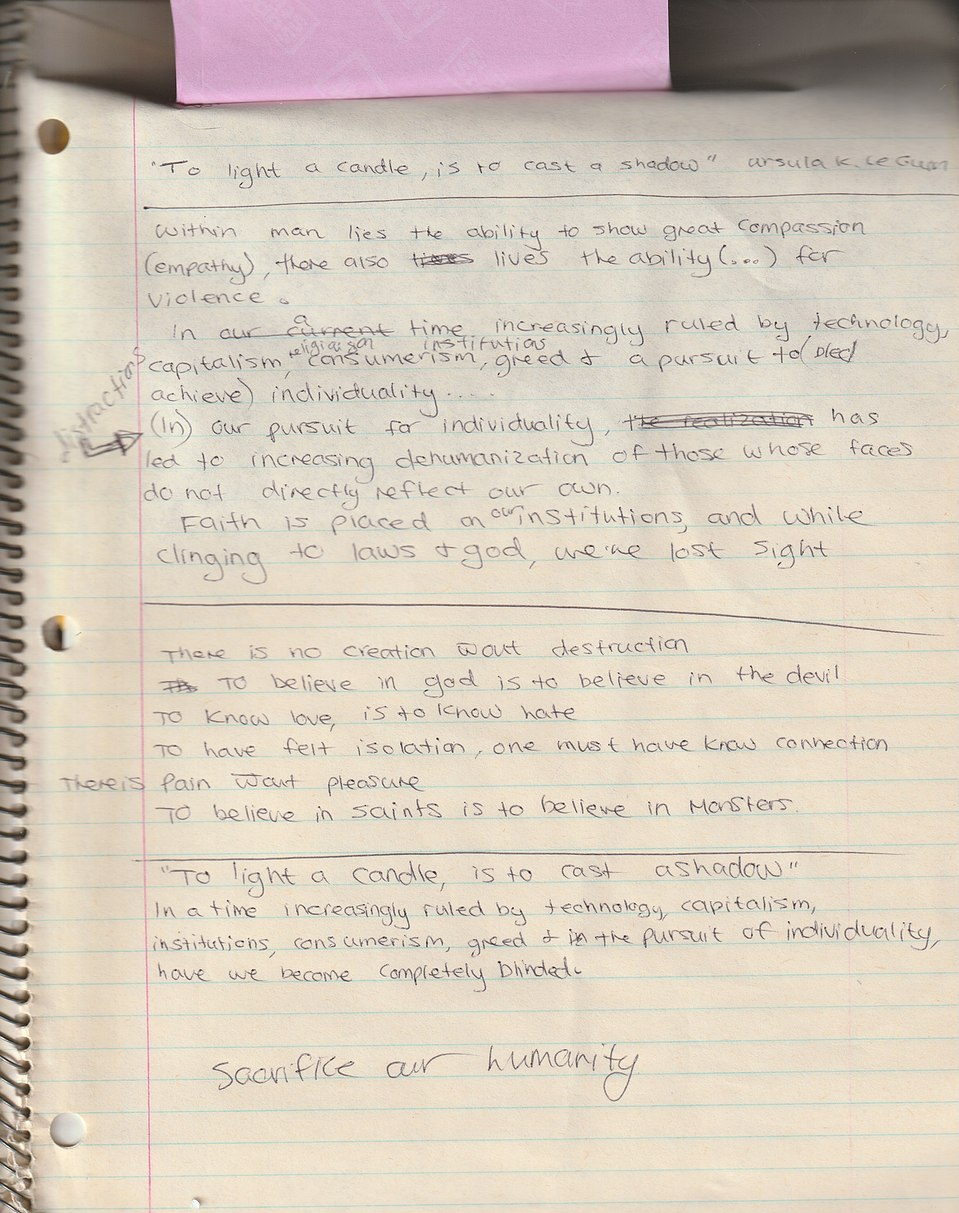 "To light a candle, is to cast a shadow" ursula k. Le Guin
Within man lies the ability to show great compassion
(empathy), there also lives the ability (...) for
violence.
a
In our current time, increasingly ruled by technology,
religion institutions
capitalism, consumerism, greed & a pursuit to (
achieve) individuality.....
distractions
(In) our pursuit for individuality, the realization has
led to increasing dehumanization of those whose faces
do not directly reflect our own.
Faith is placed on our institutions, and while
clinging to laws & god, we've lost sight
There is no creation w̄out destruction
To believe in god is to believe in the devil
To know love, is to know hate
To have felt isolation, one must have know connection
There is pain w̄out pleasure
To believe in saints is to believe in Monsters.
"To light a candle, is to cast a shadow"
In a time increasingly ruled by technology, capitalism,
institutions, consumerism, greed & in the pursuit of individuality,
have we become completely blinded.
Sacrifice our humanity